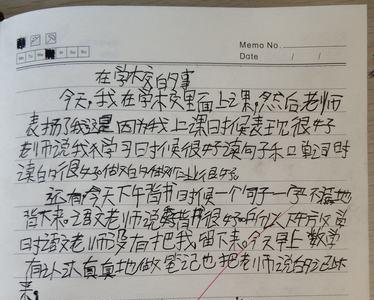 Memo No.
Date / /
在学校的事
今天,我在学校里面上课,然后老师
表扬了我 因为我上课日寸候表现很好
老师说我学习日寸候很好读句子和单词时
读的很好做的
还有今天下午背书日寸候一个句子一字不落地
背下来。语文老师说我背书很好所以下午放学
日寸语文老师没有把我留下来。今天早上数学
有认认真真地做笔记也把老师说的